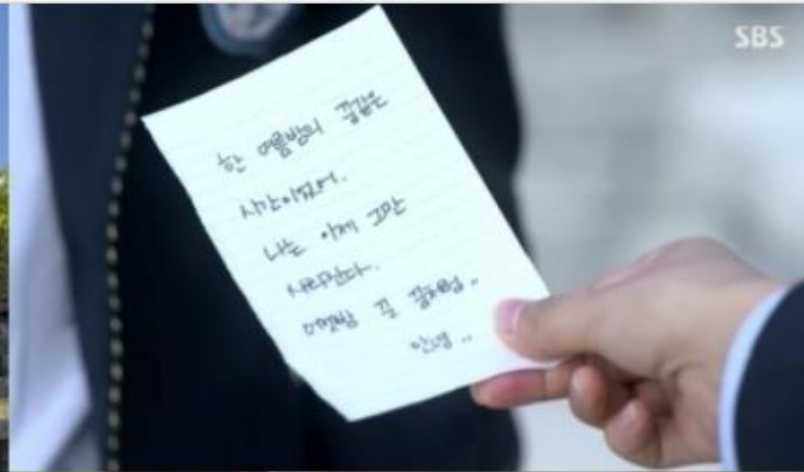 SBS
한 여름밤의 꿈같은
시간이었어.
나는 이제 그만
사라진다.
여름밤 꾼 꿈처럼..
안녕..